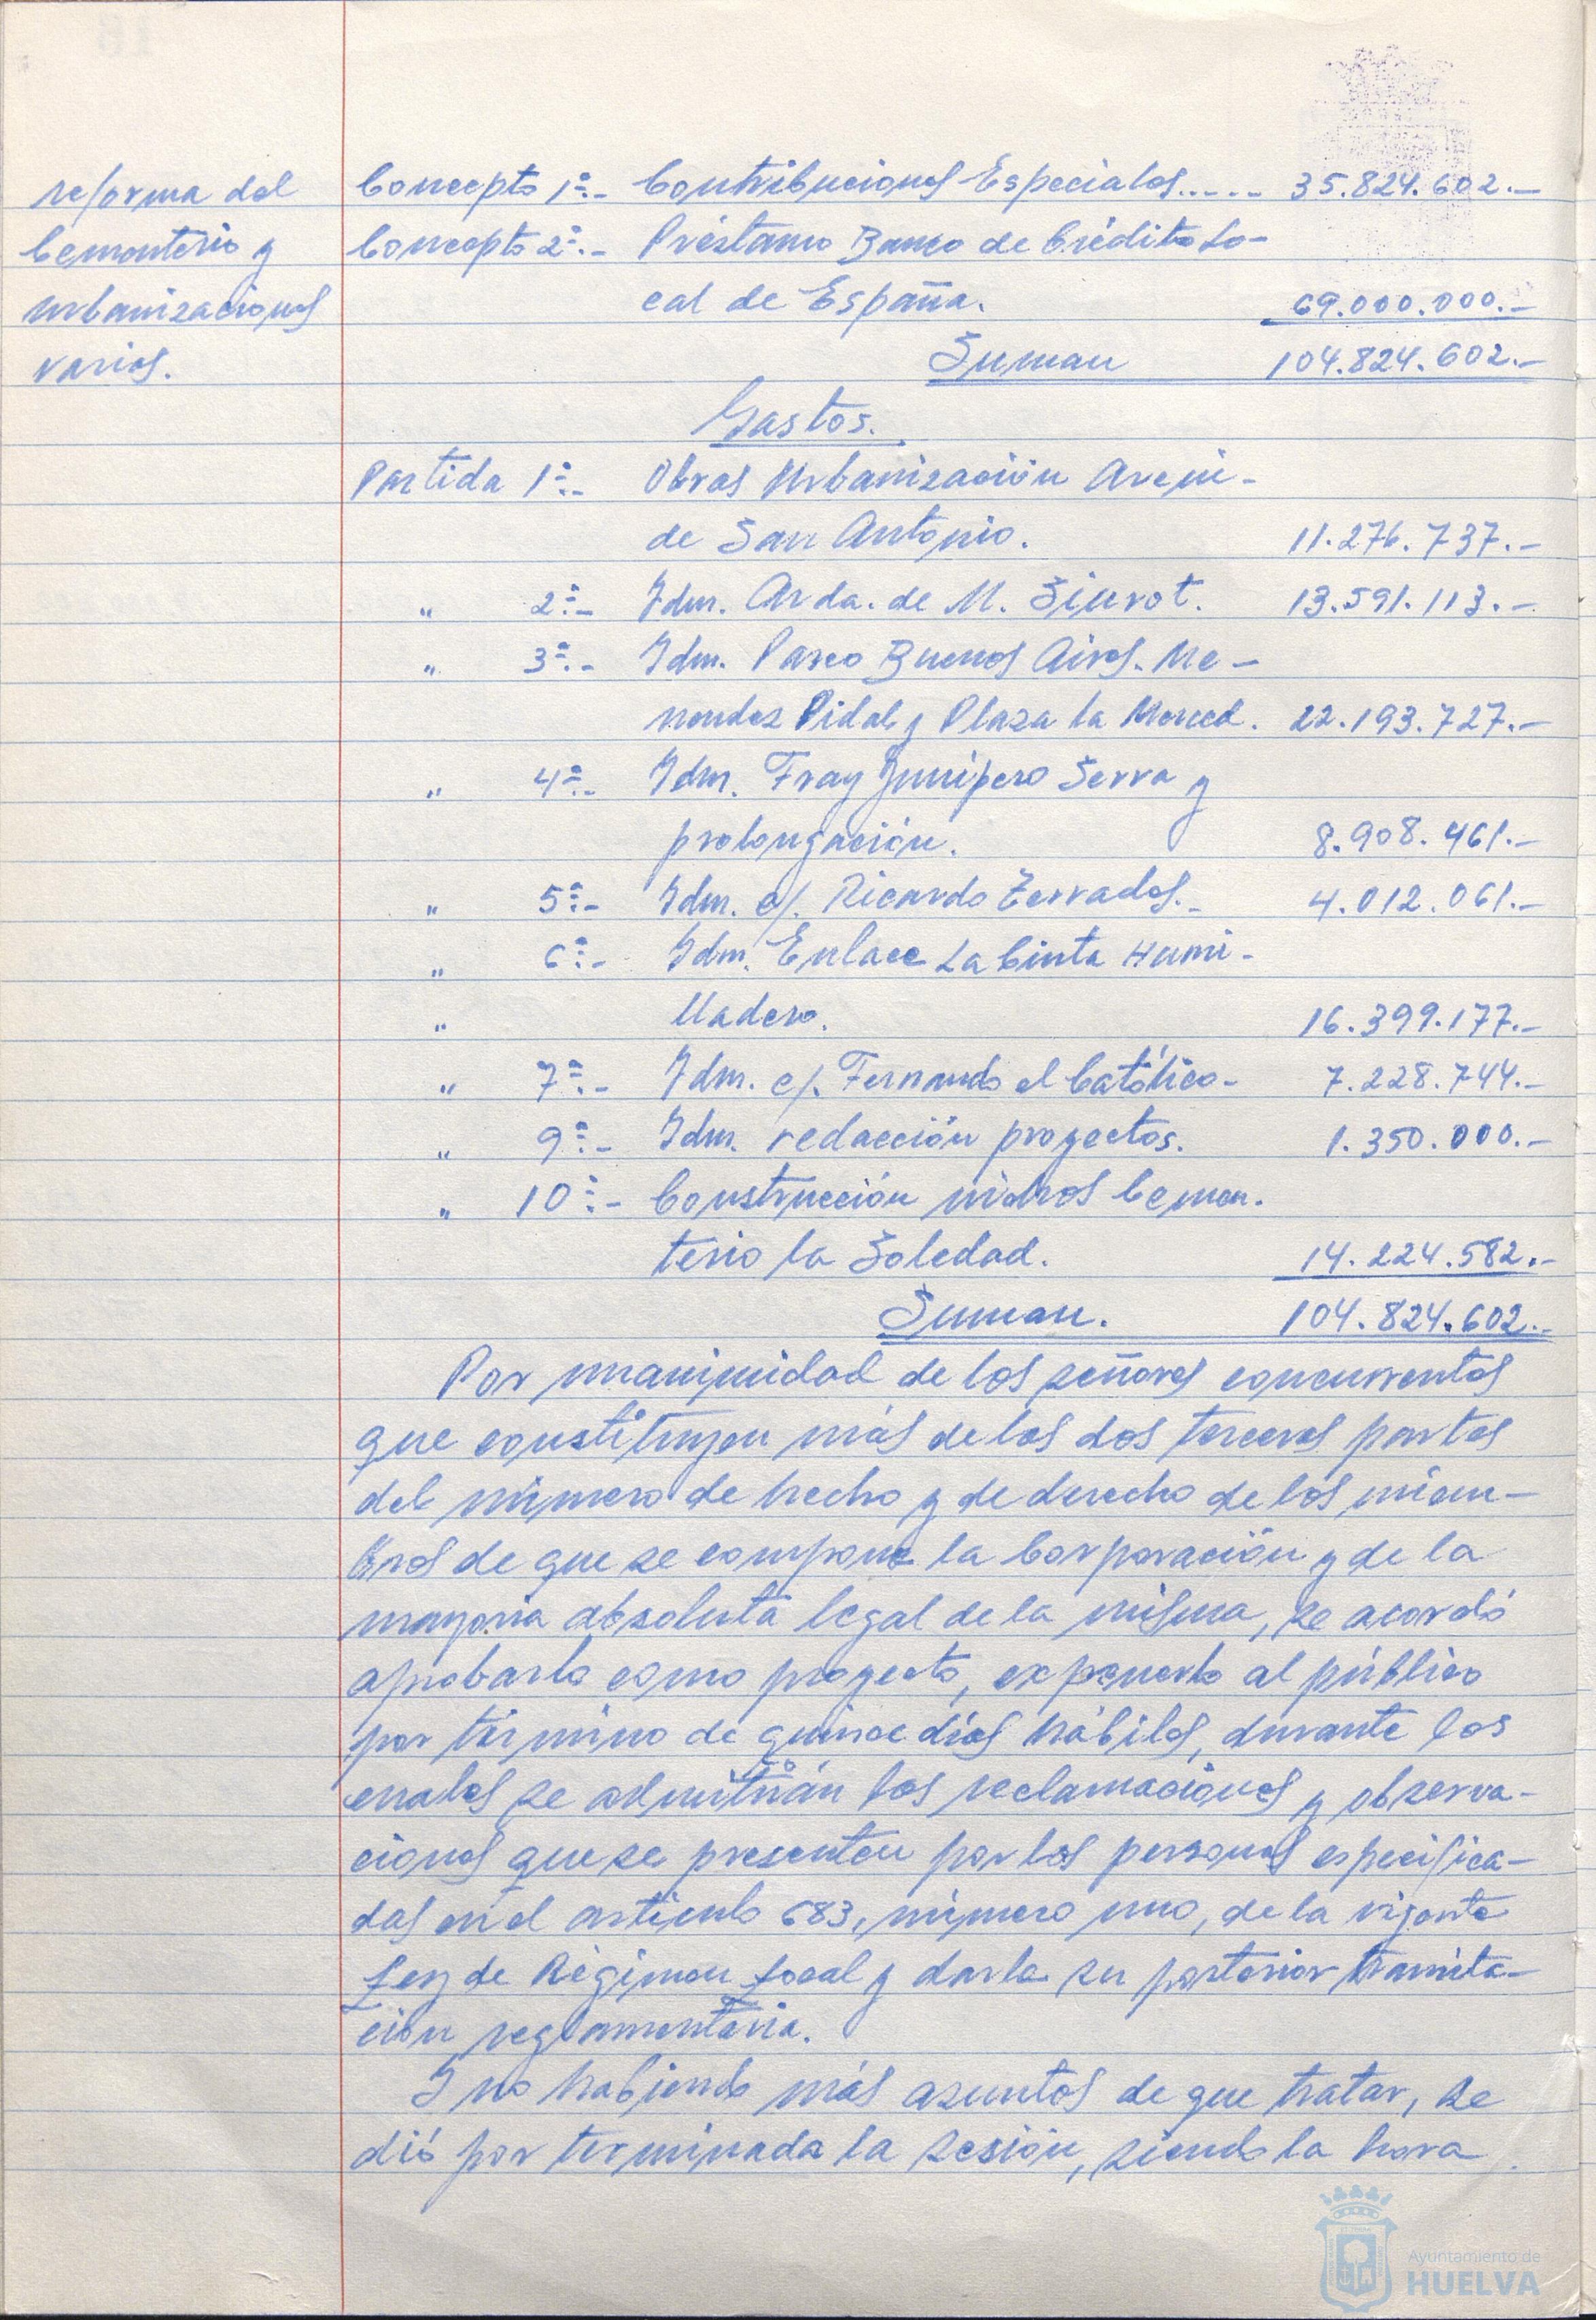 reforma del
Cementerio y
urbanizaciones
varias.
Concepto 1º.- Contribuciones Especiales..... 35.824.602.-
Concepto 2º.- Préstamo Banco de Crédito Lo-
cal de España. 69.000.000.-
Suman 104.824.602.-
Gastos.
Partida 1ª.- Obras Urbanización Aveni-
de San Antonio. 11.276.737.-
" 2ª.- Idm. Avda. de M. Siurot. 13.591.113.-
" 3ª.- Idm. Paseo Buenos Aires. Me-
nendez Pidal y Plaza la Merced. 22.193.727.-
" 4ª.- Idm. Fray Junípero Serra y
prolongación. 8.908.461.-
" 5ª.- Idm. c/. Ricardo Terrades.- 4.012.061.-
" 6ª.- Idm. Enlace La Cinta Humi-
" lladero. 16.399.177.-
" 7ª.- Idm. c/. Fernando el Católico- 7.228.744.-
" 9ª.- Idm. redacción proyectos. 1.350.000.-
" 10ª.- Construcción nichos Cemen-
terio la Soledad. 14.224.582.-
Suman. 104.824.602.-
Por unanimidad de los señores concurrentes
que constituyen más de las dos terceras partes
del número de hecho y de derecho de los miem-
bros de que se compone la Corporación y de la
mayoria absoluta legal de la misma, se acordó
aprobarlo como proyecto, exponerlo al público
por término de quince días hábiles, durante los
cuales se admitirán las reclamaciones y observa-
ciones que se presenten por las personas especifica-
das en el artículo 683, número uno, de la vigente
Ley de Régimen Local y darle su posterior tramita-
ción reglamentaria.
Y no habiendo más asuntos de que tratar, se
dió por terminada la sesión, siendo la hora
Ayuntamiento de
HUELVA